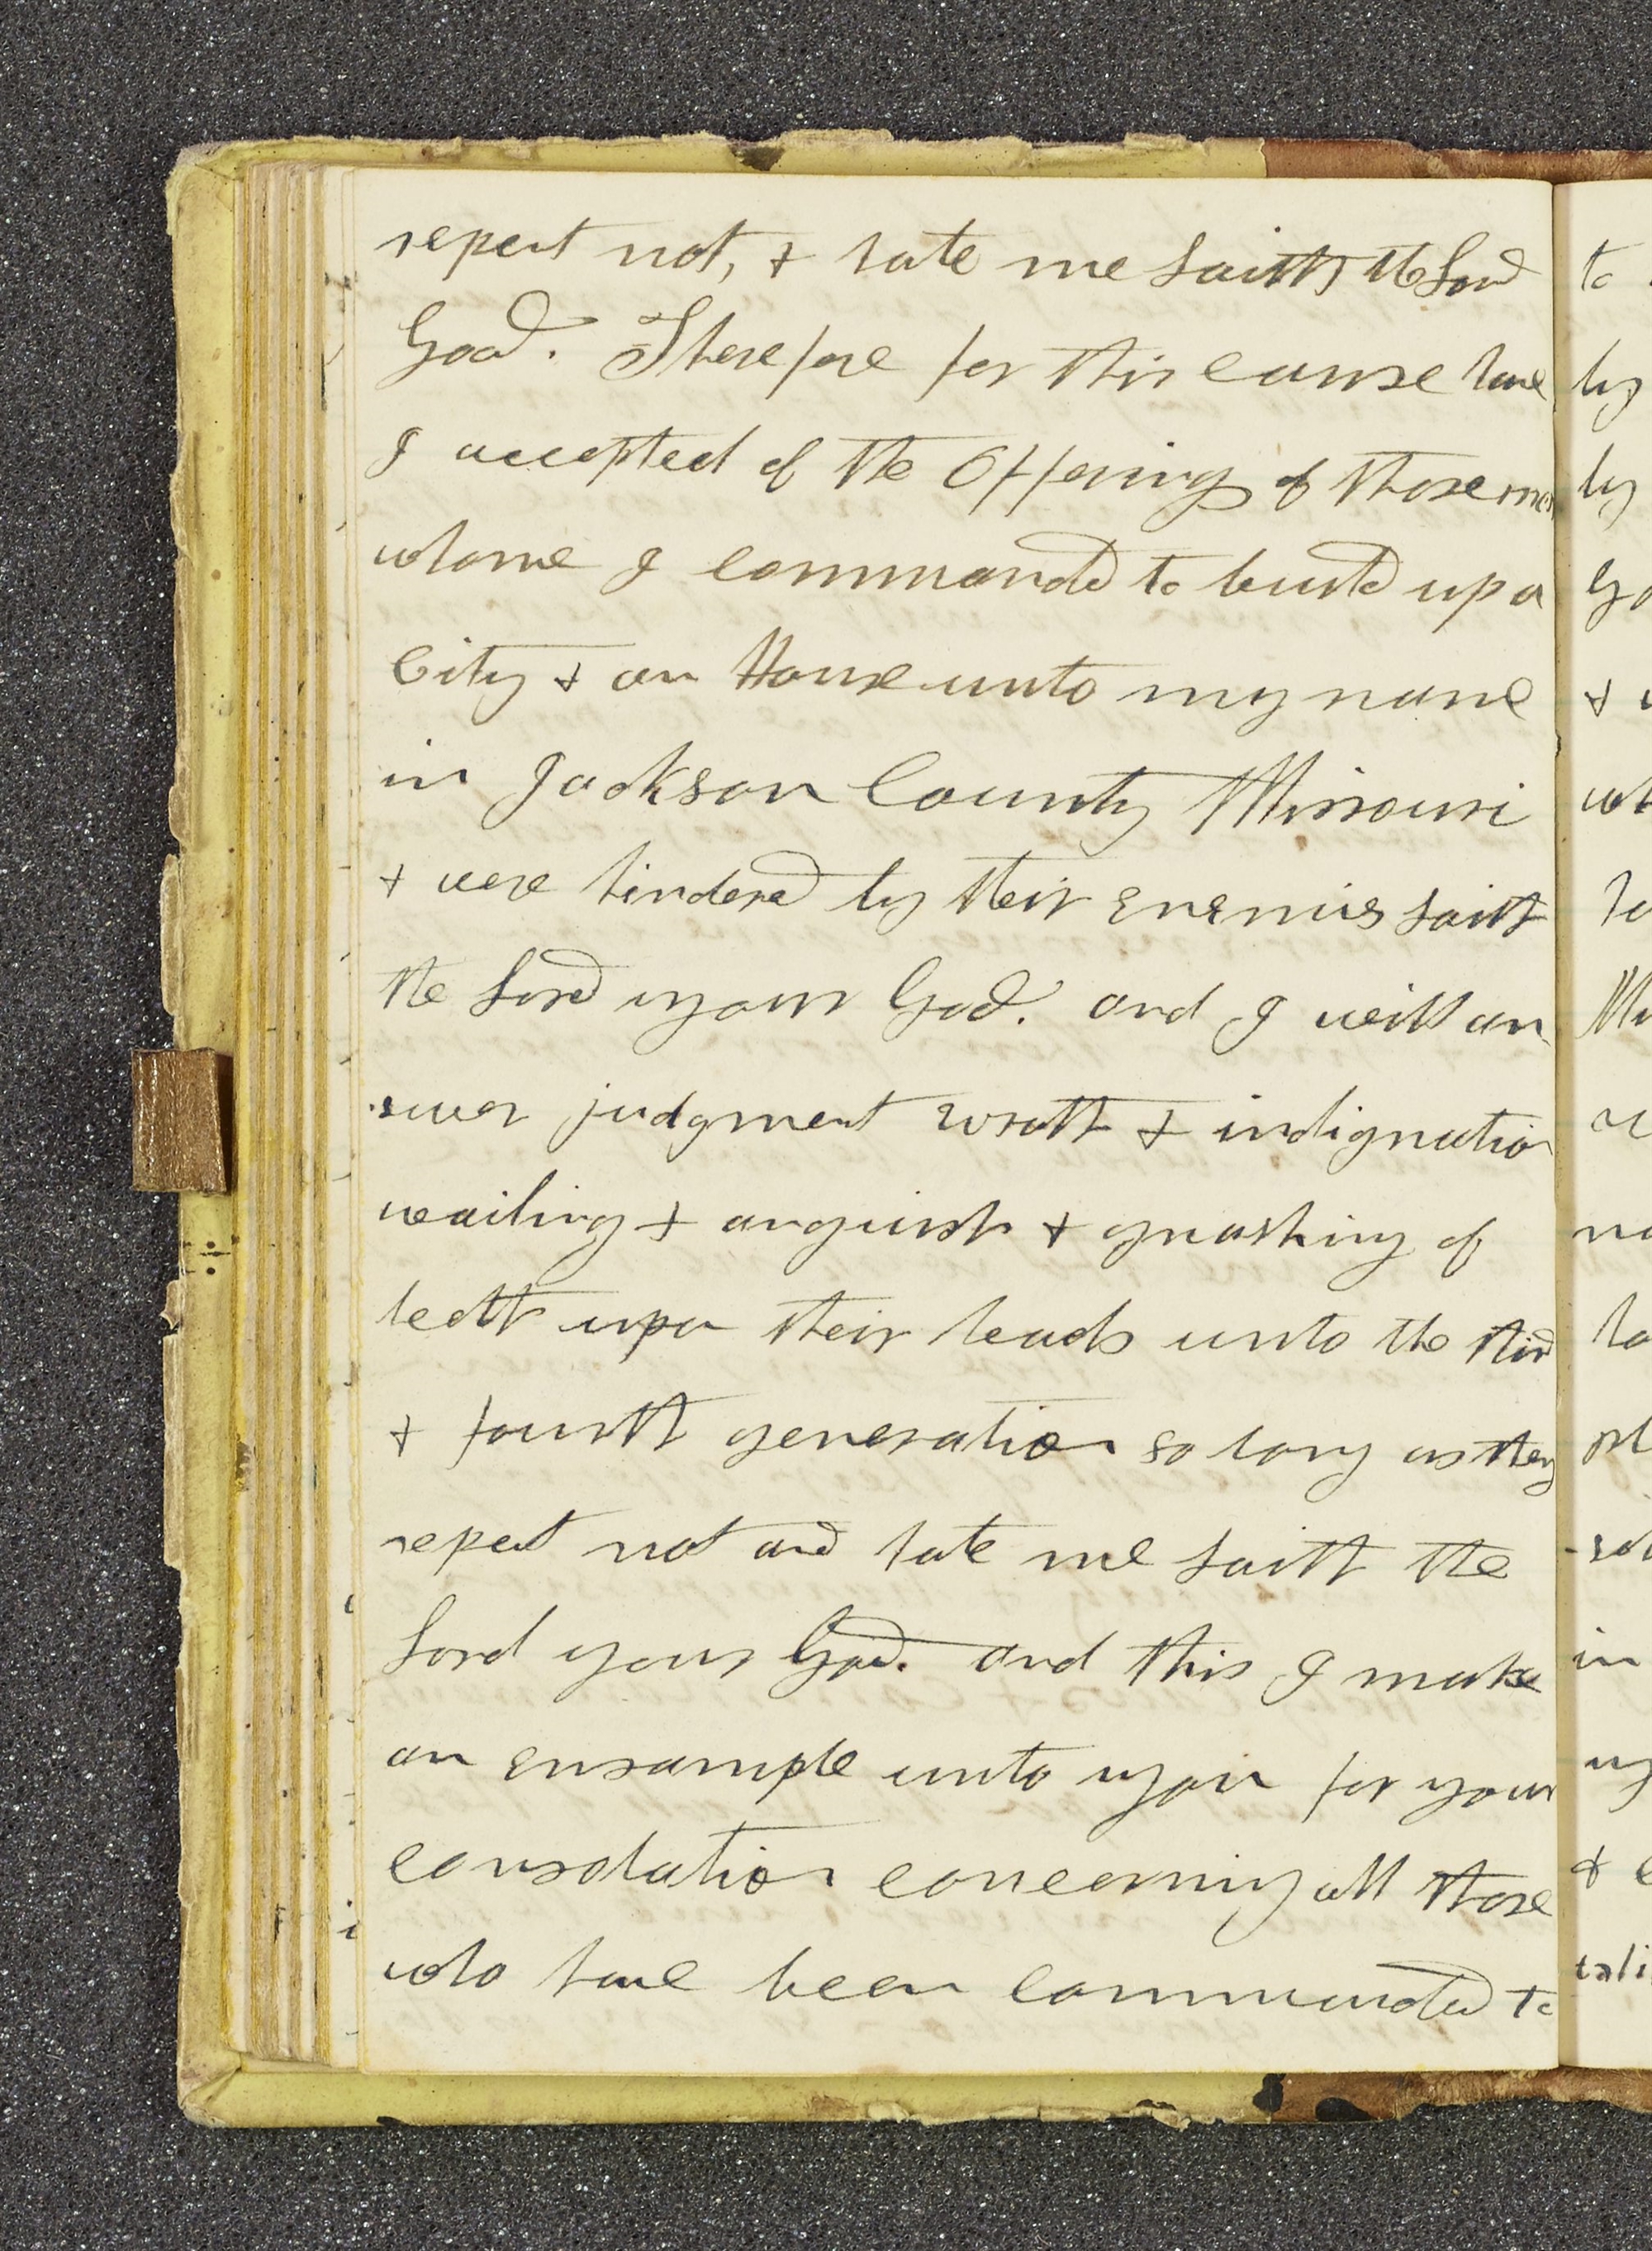 repent not, & hate me saith the Lord
God. Therefore for this cause have
I accepted of the Offerings of those men
whome I commanded to build up a
City & an House unto my name
in Jackson County Missouri
& were hindered by their enemies saith
the Lord your God. and I will an
swer judgment wrath & indignation
wailing & anguish & gnashing of
teeth upon their heads unto the third
& fourth generation so long as they
repent not and hate me saith the
Lord your God. and this I make
an ensample unto you for your
consolation concerning all those
who have been commanded to
to
by
by
& 
in